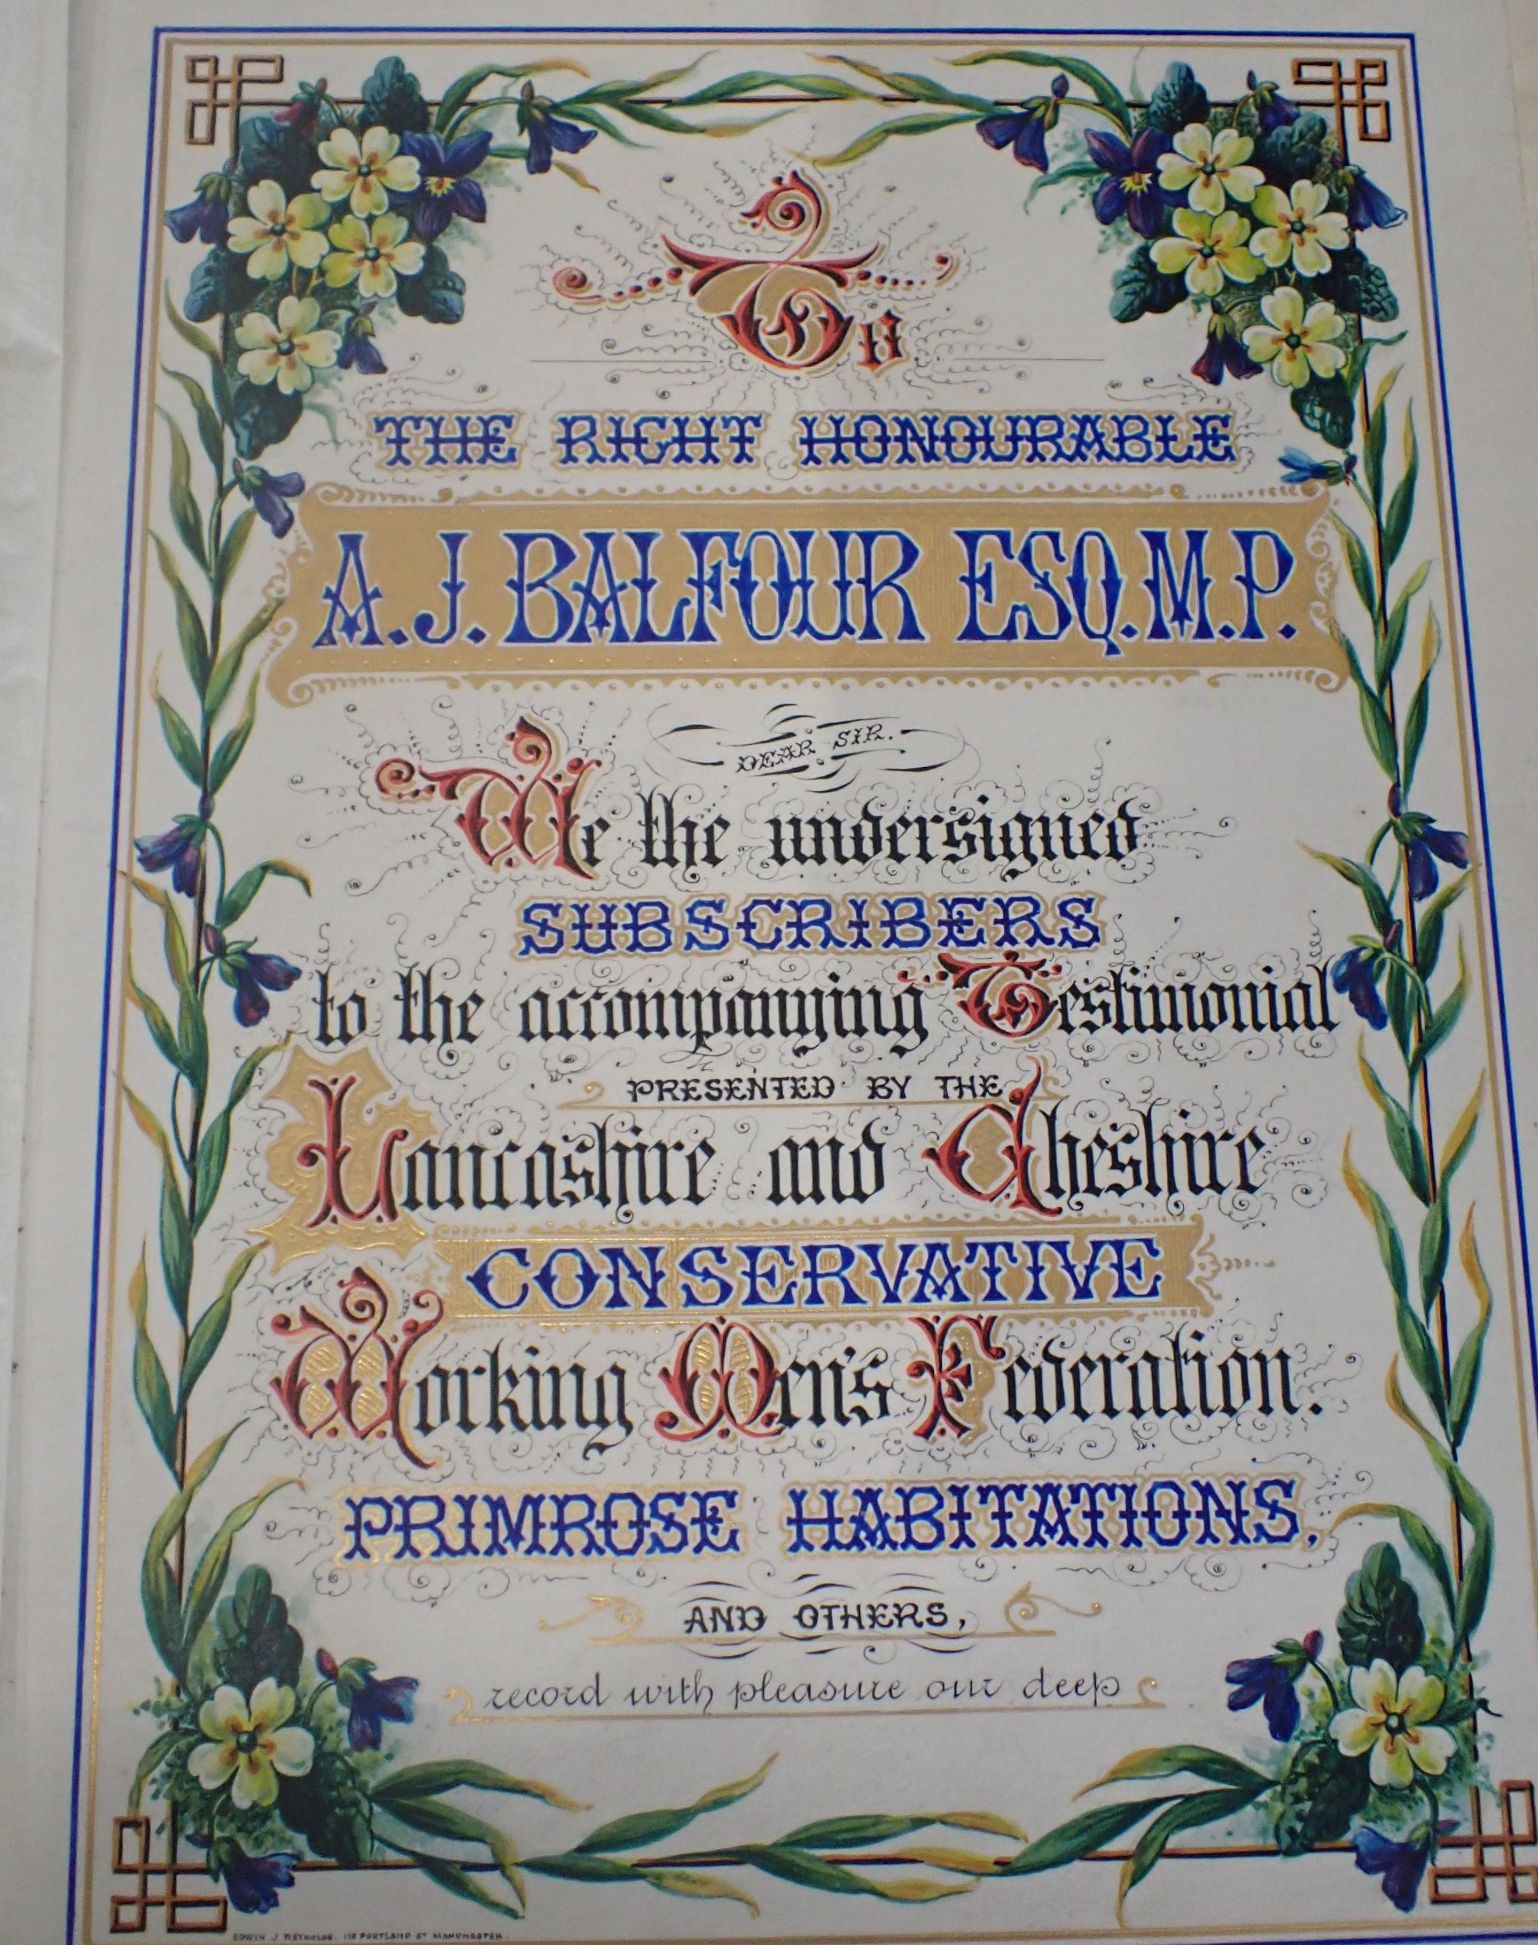 To
THE RIGHT HONOURABLE
A. J. BALFOUR ESQ. M.P.
DEAR SIR.
We the undersigned
SUBSCRIBERS
to the accompanying Testimonial
PRESENTED BY THE
Lancashire and Cheshire
CONSERVATIVE
Working Men's Federation.
PRIMROSE HABITATIONS,
AND OTHERS,
record with pleasure our deep
EDWIN J REYNOLDS, 113 PORTLAND ST MANCHESTER.